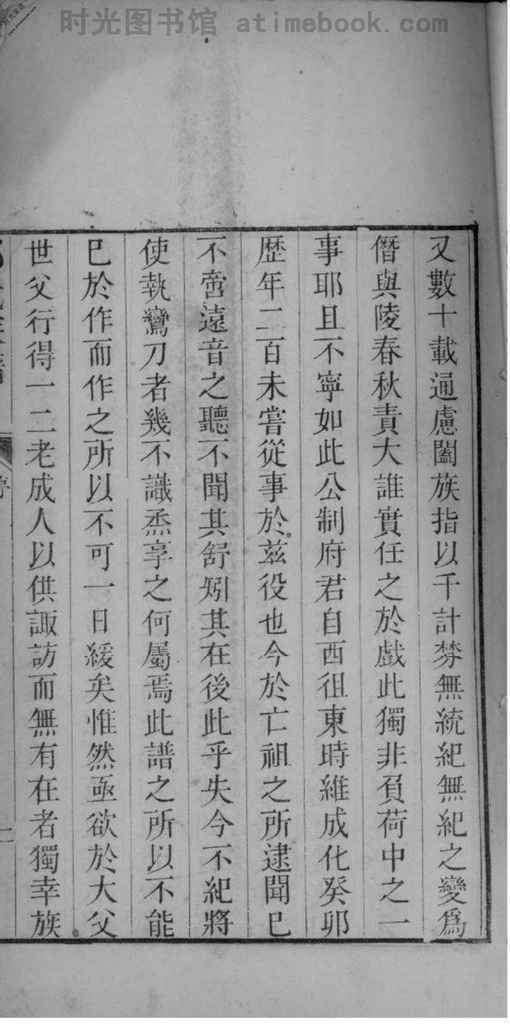 时光图书馆 atimebook.com
又數十載通慮闔族指以千計棼無統紀無紀之變爲
僭與陵春秋責大誰實任之於戲此獨非負荷中之一
事耶且不寧如此公制府君自西徂東時維成化癸卯
歷年二百未嘗從事於茲役也今於亡祖之所逮聞已
不啻遠音之聽不聞其舒矧其在後此乎失今不紀將
使執鸞刀者幾不識烝享之何屬焉此譜之所以不能
已於作而作之所以不可一日緩矣惟然亟欲於大父
世父行得一二老成人以供諏訪而無有在者獨幸族
序